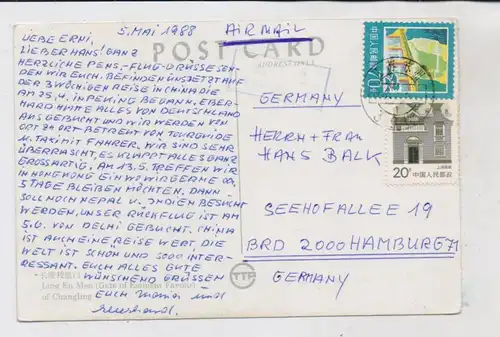 5. MAI 1988
AIR MAIL
POST CARD
ADDRESS ONLY
LIEBE ERNI,
LIEBER HANS! GANZ
HERZLICHE PENS.-FLUG-DRÜSSE SEN-
DEN WIR EUCH. BEFINDEN UNS JETZT AUF
DER 3 WÖCHIGEN REISE IN CHINA DIE
AM 25.4. IN PEKING BEGANN. EBER-
HARD HATTE ALLES VON DEUTSCHLAND
AUS GEBUCHT UND WIR WERDEN VON
ORT ZU ORT BETREUT VON TOURGUIDE
U. TAXI MIT FAHRER. WIR SIND SEHR
ÜBERRASCHT, ES KLAPPT ALLES GANZ
GROSSARTIG. AM 13.5. TREFFEN WIR
IN HONGKONG EIN WO WIR GERNE CA.
5 TAGE BLEIBEN MÖCHTEN. DANN
SOLL NOCH NEPAL U. INDIEN BESUCHT
WERDEN, UNSER RÜCKFLUG IST AM
5.6. VON DELHI GEBUCHT. CHINA
IST AUCH EINE REISE WERT, DIE
WELT IST SCHÖN UND SOOO INTER-
RESSANT. EUCH ALLES GUTE
WÜNSCHEN U. GRÜSSEN
Long En Men (Gate of Eminent Favour)
of Changling
EUCH
und
TTP
中国人民邮政
70
20分
上海民居
中国人民邮政
GERMANY
HERRN + FRAU
HANS BALK
SEEHOFALLEE 19
BRD 2000 HAMBURG 71
GERMANY